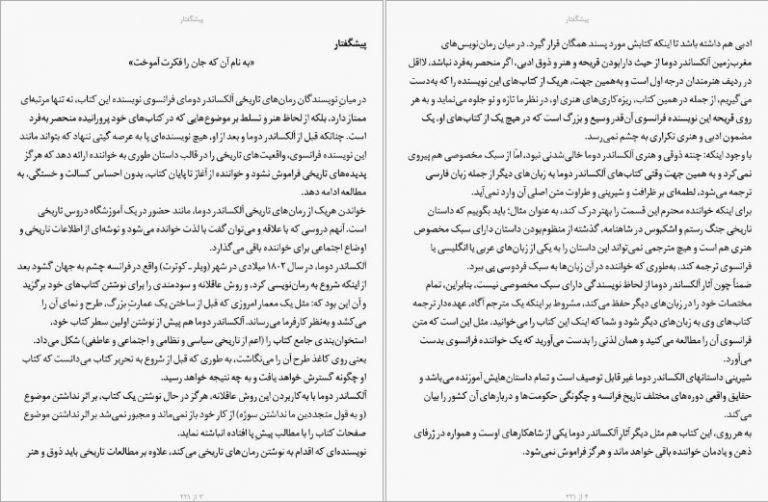 پیشگفتار
پیشگفتار
«به نام آن که جان را فکرت آموخت»
در میان نویسندگان رمان‌های تاریخی آلکساندر دومای فرانسوی نویسنده این کتاب، نه تنها مرتبه‌ای
ممتاز دارد، بلکه از لحاظ هنر و تسلط بر موضوع‌هایی که در کتاب‌های خود پرورانیده منحصر به‌فرد
است. چنانکه قبل از آلکساندر دوما و بعد از او، هیچ نویسنده‌ای پا به عرصه گیتی ننهاد که بتواند مانند
این نویسنده فرانسوی، واقعیت‌های تاریخی را در قالب داستان طوری به خواننده ارائه دهد که هرگز
پدیده‌های تاریخی فراموش نشود و خواننده از آغاز تا پایان کتاب، بدون احساس کسالت و خستگی، به
مطالعه ادامه دهد.
خواندن هریک از رمان‌های تاریخی آلکساندر دوما، مانند حضور در یک آموزشگاه دروس تاریخی
است. آنهم دروسی که با علاقه و می‌توان گفت با لذت خوانده می‌شود و توشه‌ای از اطلاعات تاریخی و
اوضاع اجتماعی برای خواننده باقی می‌گذارد.
آلکساندر دوما، در سال ۱۸۰۲ میلادی در شهر (ویلر ـ کوترت) واقع در فرانسه چشم به جهان گشود بعد
از اینکه شروع به رمان‌نویسی کرد، و روش عاقلانه و سودمندی را برای نوشتن کتاب‌های خود برگزید
و آن این بود که: مثل یک معمار امروزی که قبل از ساختن یک عمارت بزرگ، طرح و نمای آن را
می‌کشد و به‌نظر کارفرما می‌رساند. آلکساندر دوما هم پیش از نوشتن اولین سطر کتاب خود،
استخوان‌بندی جامع کتاب را (اعم از تاریخی سیاسی و نظامی و اجتماعی و عاطفی) شکل می‌داد.
یعنی روی کاغذ طرح آن را می‌نگاشت، به طوری که قبل از شروع به تحریر کتاب می‌دانست که کتاب
او چگونه گسترش خواهد یافت و به چه نتیجه خواهد رسید.
آلکساندر دوما با به کاربردن این روش عاقلانه، هرگز در حال نوشتن یک کتاب، بر اثر نداشتن موضوع
(و به قول متجددین ما نداشتن سوژه) از کار خود باز نمی‌ماند و مجبور نمی‌شد بر اثر نداشتن موضوع
صفحات کتاب را با مطالب پیش پا افتاده انباشته نماید.
نویسنده‌ای که اقدام به نوشتن رمان‌های تاریخی می‌کند، علاوه بر مطالعات تاریخی باید ذوق و هنر
۳ از ۲۲۱
پیشگفتار
ادبی هم داشته باشد تا اینکه کتابش مورد پسند همگان قرار گیرد. در میان رمان‌نویس‌های
مغرب‌زمین آلکساندر دوما از حیث دارابودن قریحه و هنر و ذوق ادبی، اگر منحصر به‌فرد نباشد، لااقل
در ردیف هنرمندان درجه اول است و به‌همین جهت، هریک از کتاب‌های این نویسنده را که به‌دست
می‌گیریم، از جمله در همین کتاب، ریزه‌کاری‌های هنری او، در نظر ما تازه و نو جلوه می‌نماید و به هر
روی قریحه این نویسنده فرانسوی آن‌قدر وسیع و بزرگ است که در هیچ یک از کتاب‌های او، یک
مضمون ادبی و هنری تکراری به چشم نمی‌رسد.
با وجود اینکه: چنته ذوقی و هنری آلکساندر دوما خالی‌شدنی نبود، امّا از سبک مخصوصی هم پیروی
نمی‌کرد و به همین جهت وقتی کتاب‌های آلکساندر دوما به زبان‌های دیگر از جمله زبان فارسی
ترجمه می‌شود، لطمه‌ای بر ظرافت و شیرینی و طراوت متن اصلی آن وارد نمی‌آید.
برای اینکه خواننده محترم این قسمت را بهتر درک کند، به عنوان مثال؛ باید بگوییم که داستان
تاریخی جنگ رستم و اشکبوس در شاهنامه، گذشته از منظوم‌بودن داستان دارای سبک مخصوص
هنری هم است و هیچ مترجمی نمی‌تواند این داستان را به یکی از زبان‌های عربی یا انگلیسی یا
فرانسوی ترجمه کند، به‌طوری که خواننده در آن زبان‌ها به سبک فردوسی پی ببرد.
ضمناً چون آثار آلکساندر دوما از لحاظ نویسندگی دارای سبک مخصوصی نیست. بنابراین، تمام
مختصات خود را در زبان‌های دیگر حفظ می‌کند، مشروط بر اینکه یک مترجم آگاه، عهده‌دار ترجمه
کتاب‌های وی به زبان‌های دیگر شود و شما که اینک این کتاب را می‌خوانید. مثل این است که متن
فرانسوی آن را مطالعه می‌کنید و همان لذتی را بدست می‌آورید که یک خواننده فرانسوی بدست
می‌آورد.
شیرینی داستانهای الکساندر دوما غیر قابل توصیف است و تمام داستان‌هایش آموزنده می‌باشد و
حقایق واقعی دوره‌های مختلف تاریخ فرانسه و چگونگی حکومت‌ها و دربارهای آن کشور را بیان
می‌کند.
به هر روی، این کتاب هم مثل دیگر آثار آلکساندر دوما یکی از شاهکارهای اوست و همواره در ژرفای
ذهن و یادمان خواننده باقی خواهد ماند و هرگز فراموش نمی‌شود.
۴ از ۲۲۱